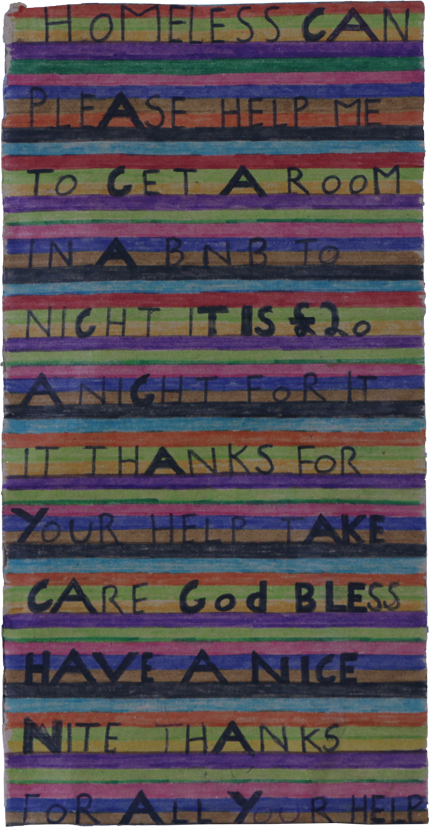 HOMELESS CAN
PLEASE HELP ME
TO GET A ROOM
IN A BNB TO
NIGHT IT IS £20
A NIGHT FOR IT
IT THANKS FOR
YOUR HELP TAKE
CARE God BLESS
HAVE A NICE
NITE THANKS
FOR ALL YOUR HELP